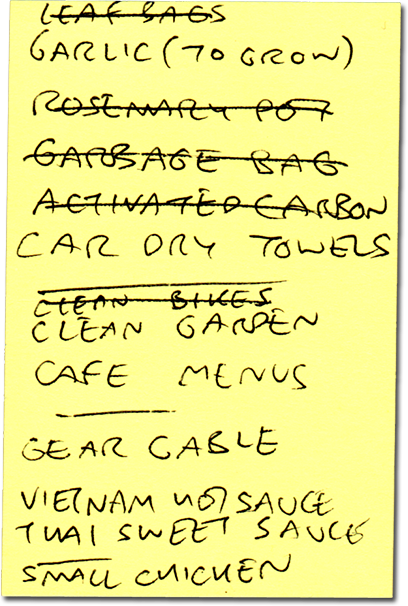 LEAF BAGS
GARLIC (TO GROW)
ROSEMARY POT
GARBAGE BAG
ACTIVATED CARBON
CAR DRY TOWELS
CLEAN BIKES
CLEAN GARDEN
CAFE MENUS
GEAR CABLE
VIETNAM HOT SAUCE
THAI SWEET SAUCE
SMALL CHICKEN